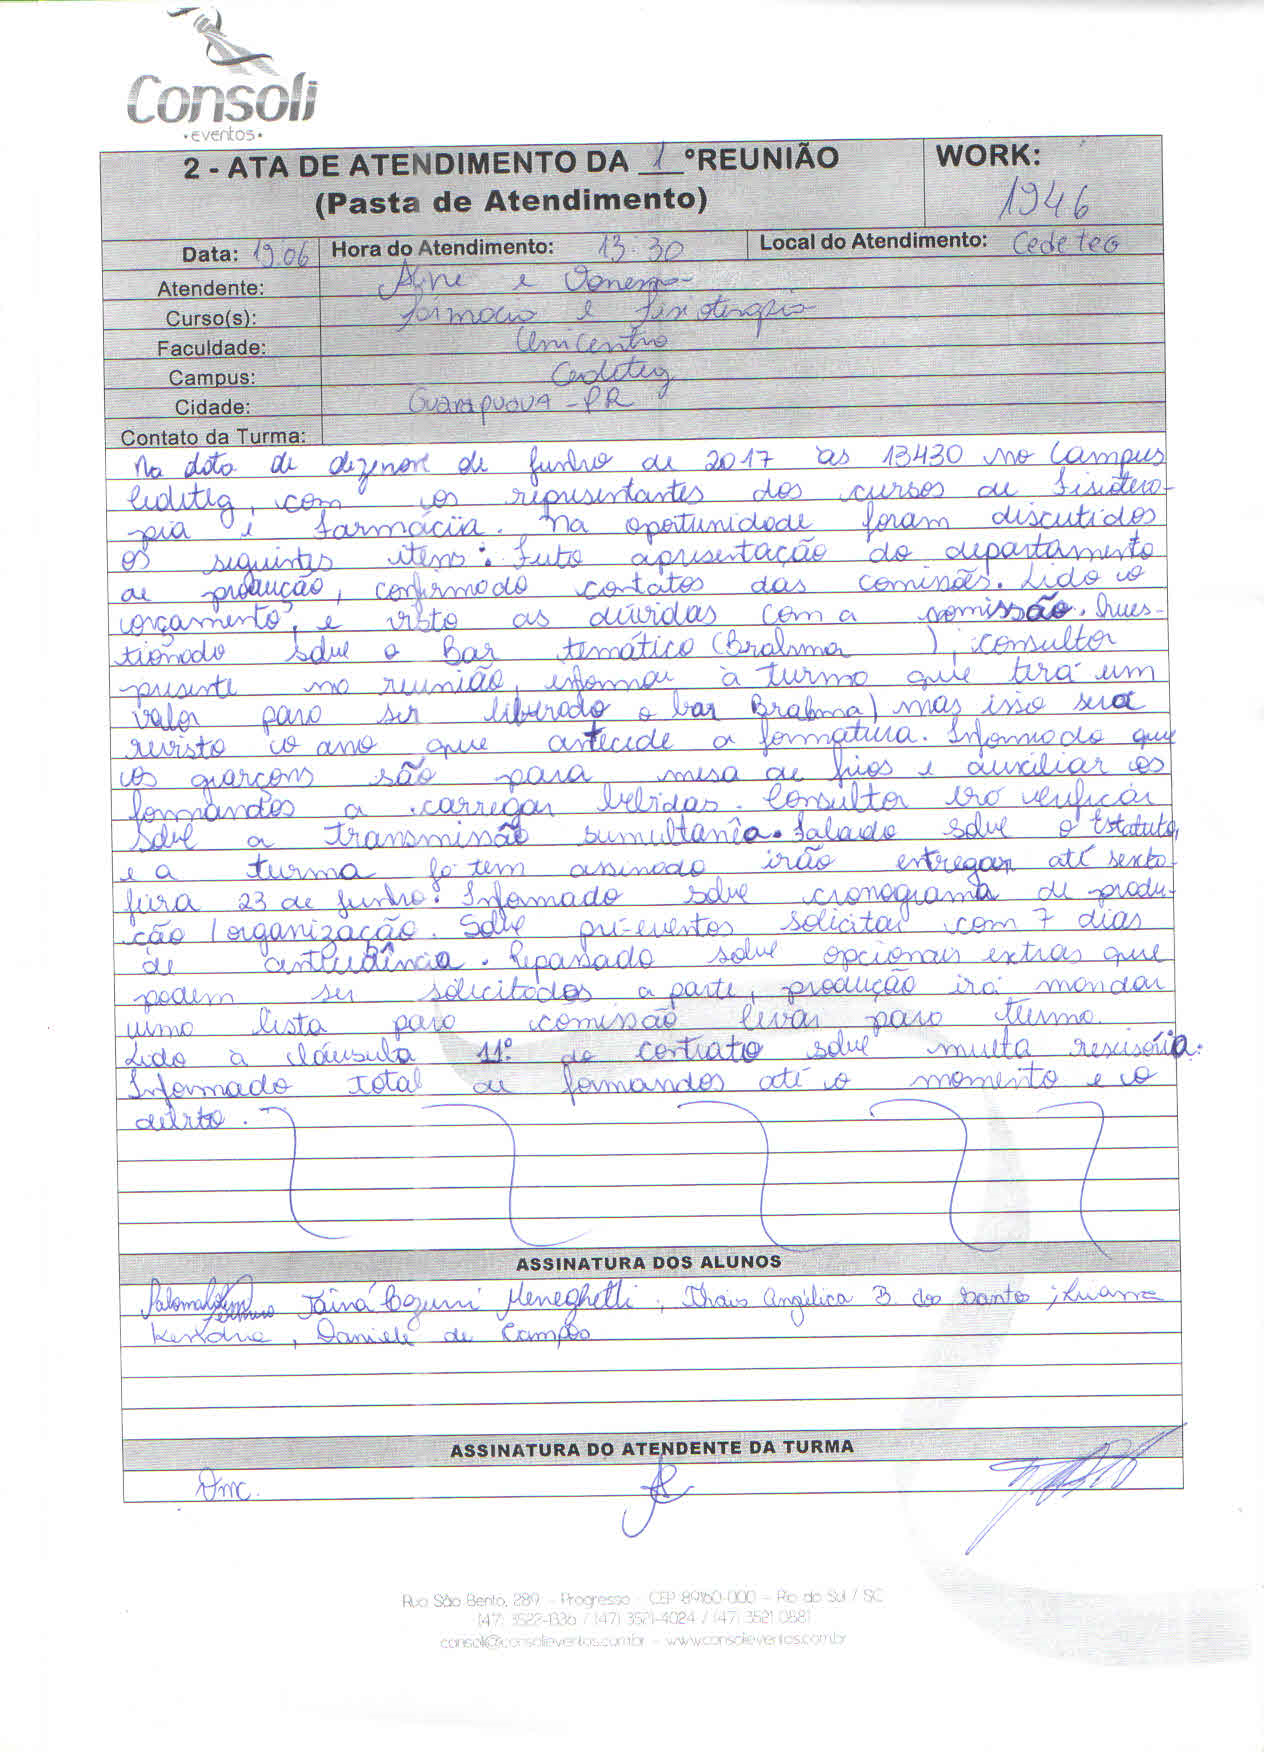 Consoli
•eventos•
2 - ATA DE ATENDIMENTO DA 1 °REUNIÃO
(Pasta de Atendimento)
WORK:
1946
Data: 19.06 Hora do Atendimento: 13:30 Local do Atendimento: Cedeteg
Atendente: e
Curso(s): Farmacia e Fisioterapia
Faculdade: Unicentro
Campus: Cedeteg
Cidade: Guarapuava - PR
Contato da Turma:
Na data de dezenove de Junho de 2017 às 13h30 no Campus
Cedeteg, com os representantes dos cursos de Fisiotera-
pia e Farmácia. Na oportunidade foram discutidos
os seguintes itens: Feito apresentação do departamento
de produção, confirmado contatos das comissões. Lido o
orçamento, e visto as dúvidas com a comissão. Ques-
tionado sobre o Bar temático (Brahma ), consultor
presente na reunião, informou à turma que terá um
valor para ser liberado o bar Brahma) mas isso será
revisto o ano que antecede a formatura. Informado que
os garçons são para mesa de frios e auxiliar os
formandos a carregar bebidas. Consultor irá verificar
sobre a transmissão sumultanêa. Falado sobre o Estatuto,
e a turma já tem assinado irão entregar até sexta-
feira 23 de Junho. Informado sobre cronograma de produ-
ção / organização. Sobre pré-eventos solicitar com 7 dias
de antecedência. Repassado sobre opcionais extras que
podem ser solicitados a parte, produção irá mandar
uma lista para comissão levar para turma.
Lido à cláusula 11º do contrato sobre multa rescisória.
Informado total de formandos até o momento e o
débito.
ASSINATURA DOS ALUNOS
Tainá Meneghetti, Thais Angélica B. dos Santos,
, Daniele de Campos
ASSINATURA DO ATENDENTE DA TURMA
Rua São Bento, 289 – Progresso - CEP 89160-000 – Rio do Sul / SC
(47) 3522-1336 / (47) 3521-4024 / (47) 3521 0881
consoli@consolieventos.com.br – www.consolieventos.com.br